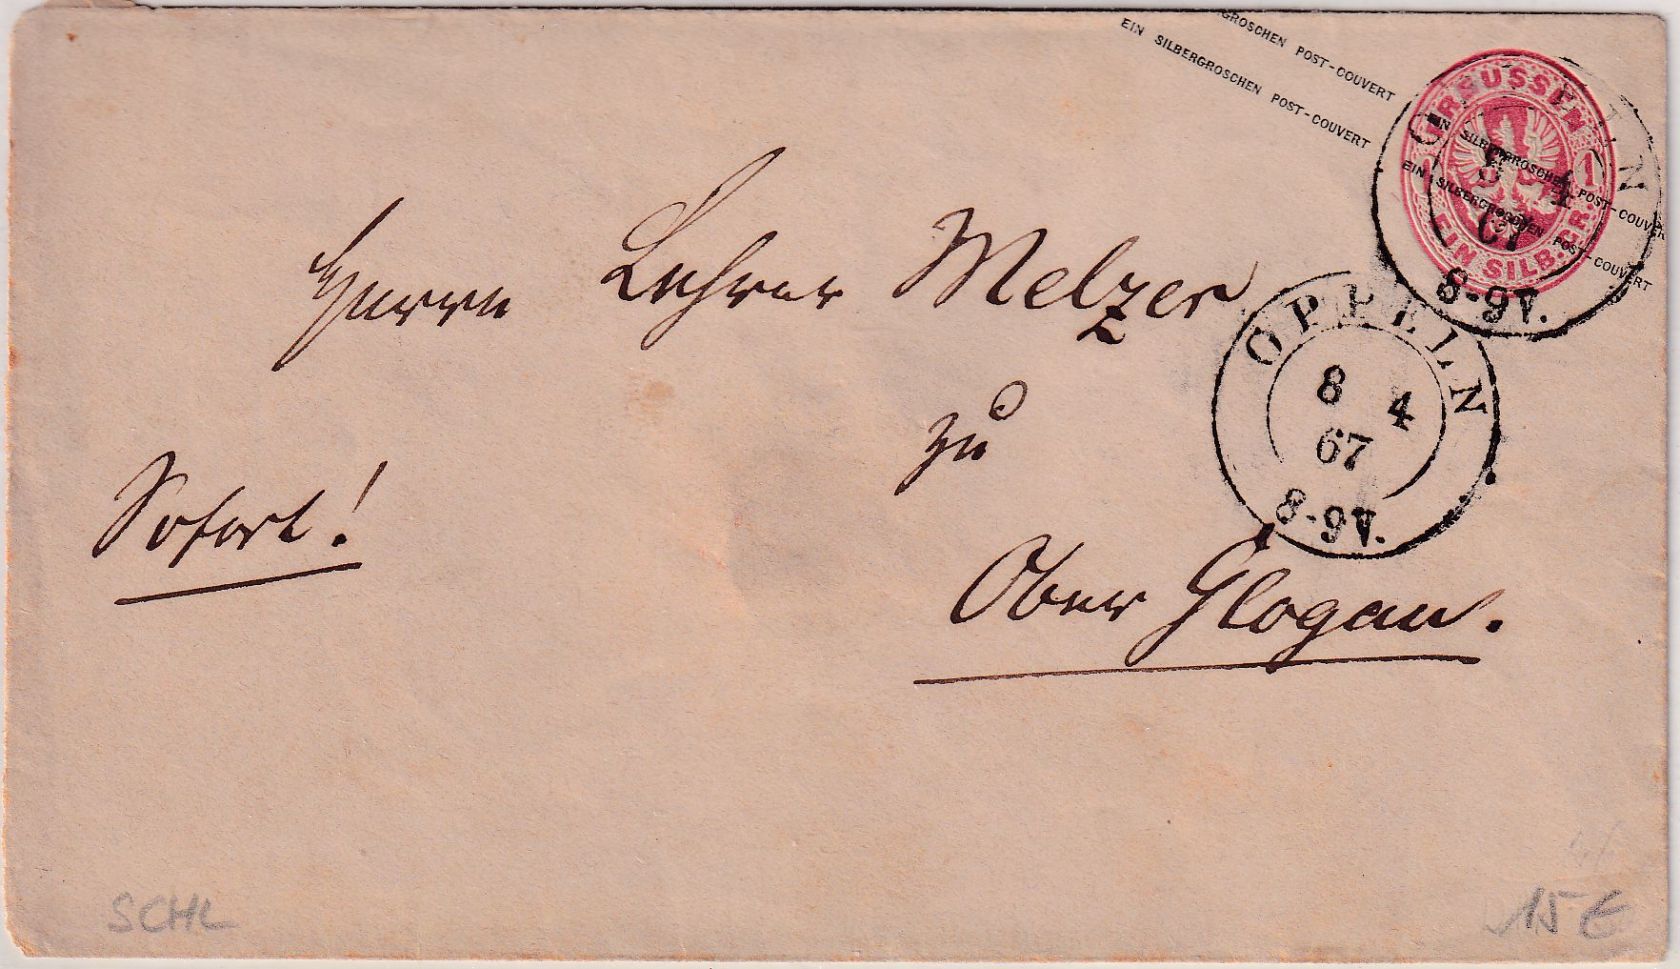 GROSCHEN POST-COUVERT
EIN SILBERGROSCHEN POST-COUVERT
EIN SILBERGROSCHEN POST-COUVERT
EIN SILBERGROSCHEN POST-COUVERT
PREUSSEN
1 1
EIN SILB. GR.
OPPELN
8 4
67
8-9V.
OPPELN
8 4
67
8-9V.
Herrn Lehrer Melzer
zu
Sofort!
Ober Glogau.
SCHL
15 €